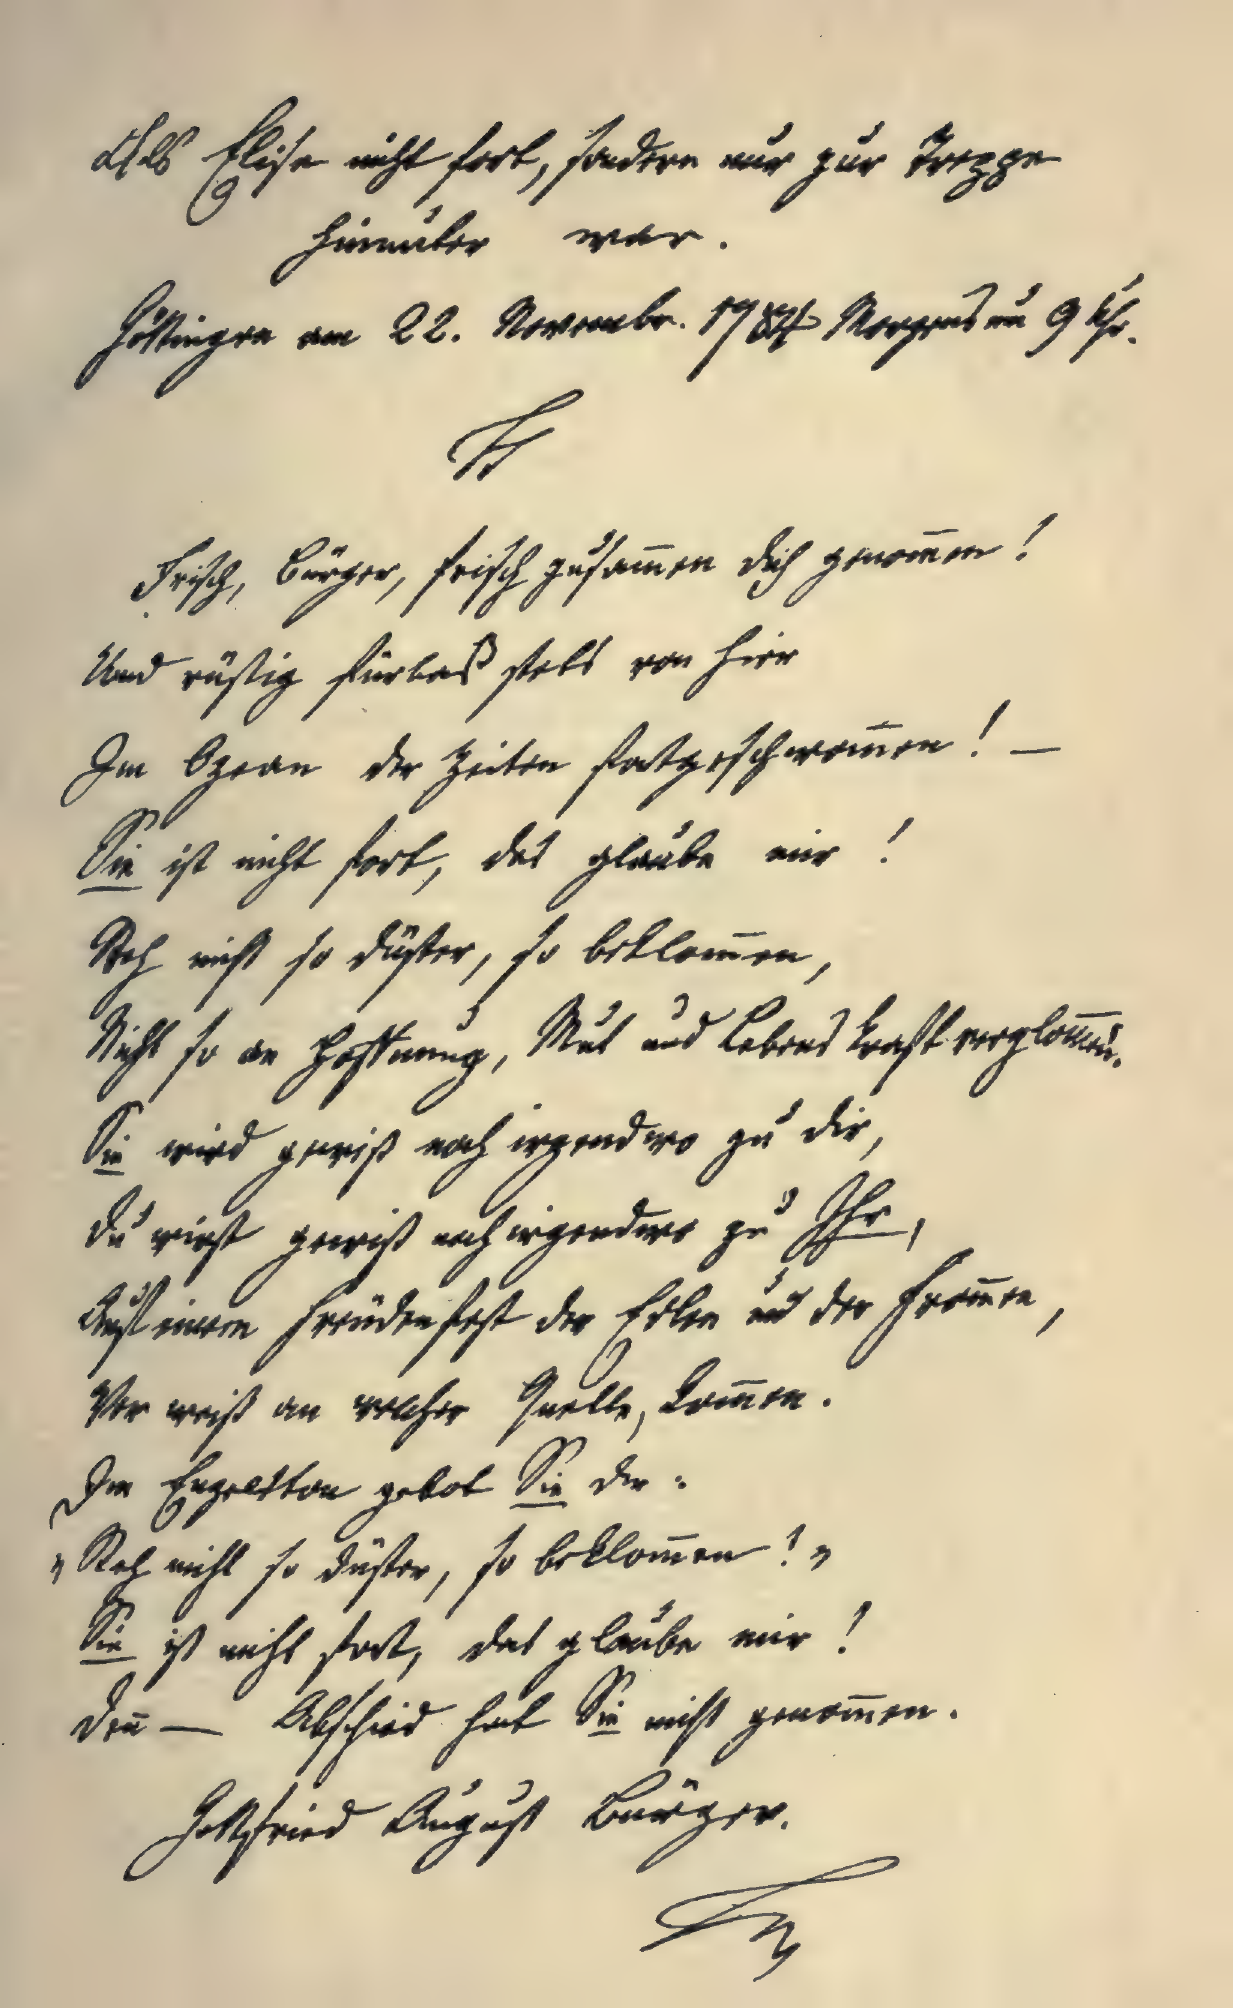 Als Elise nicht fort, sondern nur zur Treppe
hinüber war.
Göttingen am 22. Novembr. 1784 Morgens um 9 Uhr.
Frisch, Bürger, frisch zusam̅en dich genom̅en!
Und rüstig fürbaß stets von hier
Im Ozean der Zeiten fortgeschwom̅en! —
Sie ist nicht fort, das glaube mir!
Steh nicht so düster, so beklom̅en,
Nicht so an Hoffnung, Mut und Lebenskraft verglom̅en.
Sie wird gewiß noch irgendwo zu dir,
Du wirst gewiß noch irgendwo zu Ihr,
Auf einem Freudenfest der Edlen und der From̅en,
Wer weiß an welcher Quelle, kom̅en.
Im Engelston gebot Sie dir:
„Steh nicht so düster, so beklom̅en!"
Sie ist nicht fort, das glaube mir!
Den̅ — Abschied hat Sie nicht genom̅en.
Gottfried August Bürger.